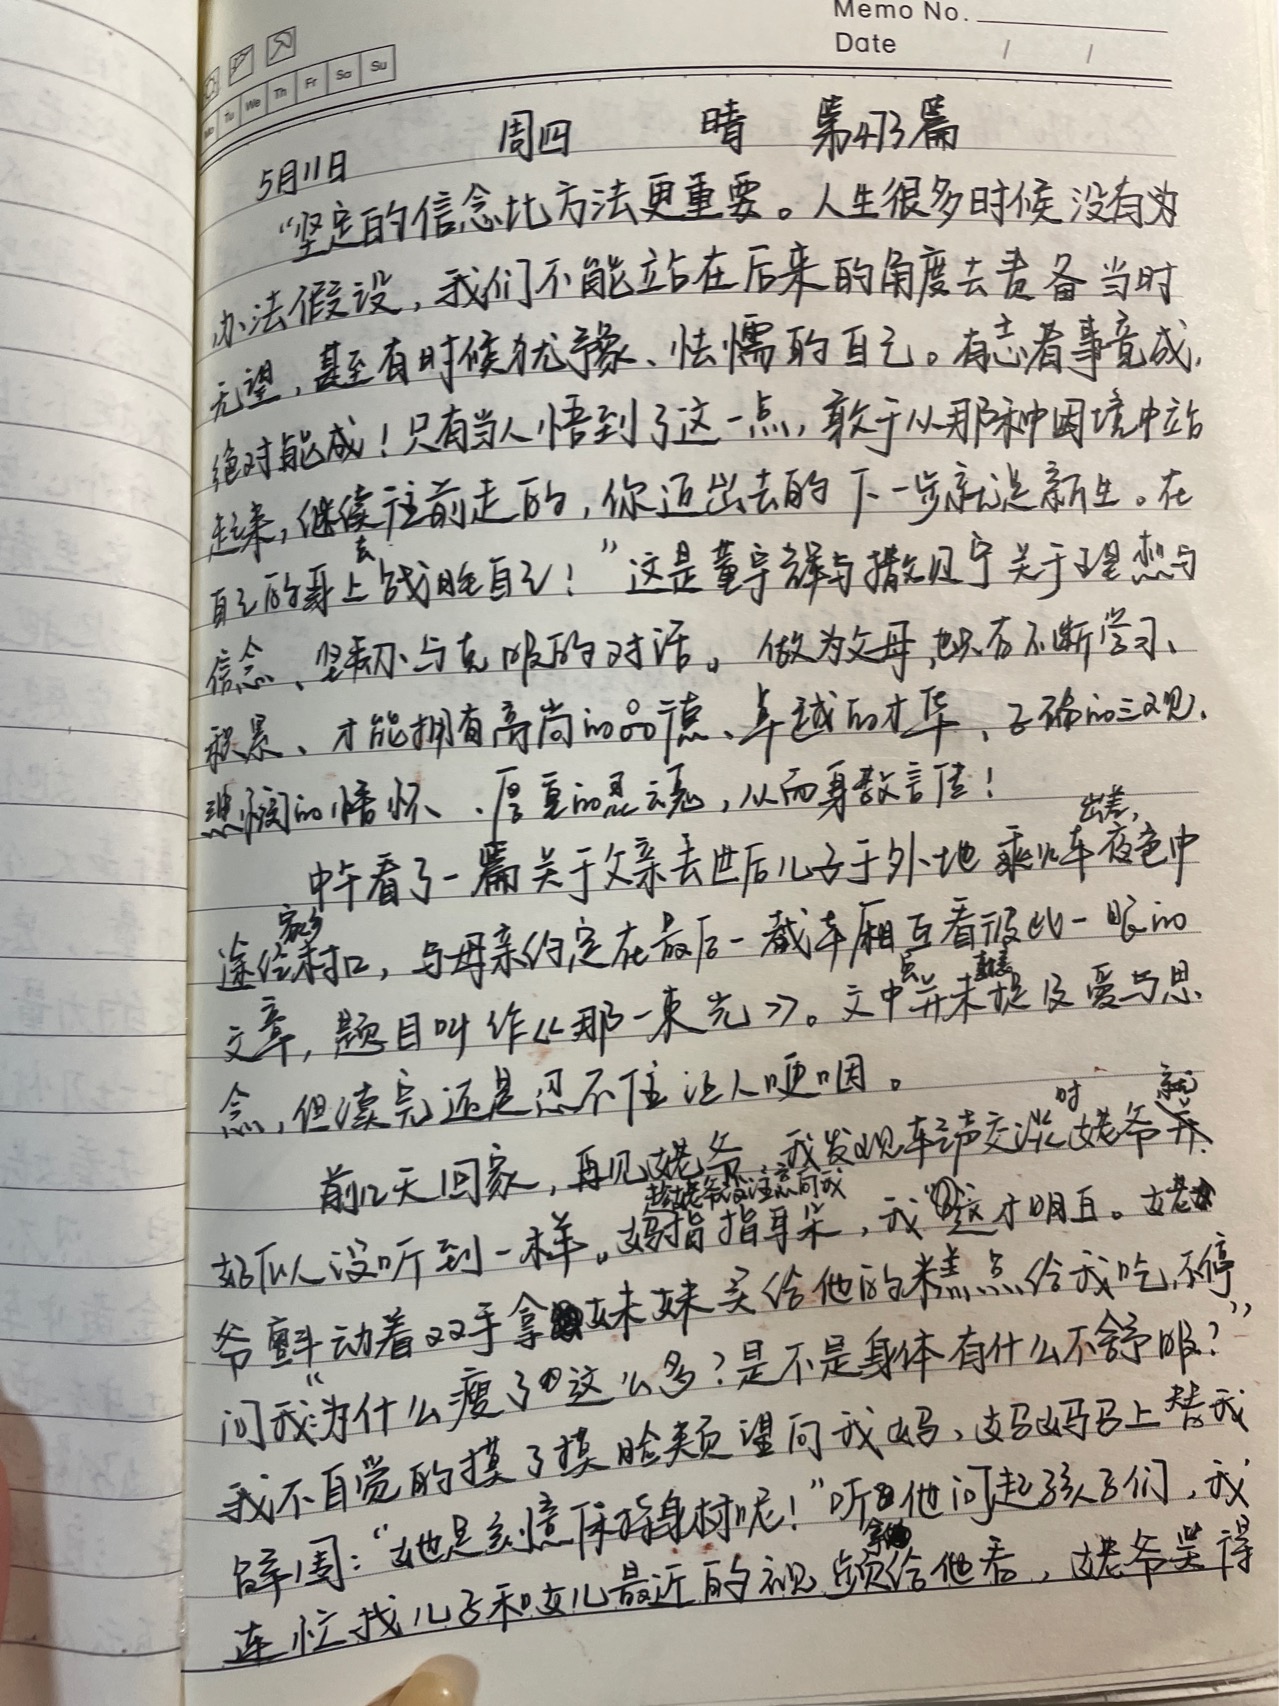 Memo No.
Date / /
Mo Tu We Th Fr Sa Su
5月11日 周四 晴 第473篇
“坚定的信念比方法更重要。人生很多时候没有为
办法假设，我们不能站在后来的角度去责备当时
无望，甚至有时候犹豫、怯懦的自己。有志者事竟成，
绝对能成！只有当人悟到了这一点，敢于从那种困境中站
起来，继续往前走的，你迈出去的下一步就是新生。在
自己的身上去战胜自己！”这是董宇辉与撒贝宁关于理想与
信念、坚韧与克服的对话。做为父母，也只有不断学习、
积累、才能拥有高尚的品德、卓越的才华、正确的三观、
的情怀、厚重的灵魂，从而身教言传！
中午看了一篇关于父亲去世后儿子于外地出差，乘火车夜色中
途经家乡村口，与母亲约定在最后一截车厢互看彼此一眼的
文章，题目叫作《那一束光》。文中并未提及爱与思
念，但读完还是忍不住让人哽咽。
前几天回家，再见姥爷，我发现车声交汇时姥爷就
好似没听到一样。妈趁姥爷没注意向我指指耳朵，我这才明白。姥
爷抖动着双手拿妹妹买给他的糕点给我吃，不停
问我“为什么瘦了这么多？是不是身体有什么不舒服？”
我不自觉的摸了摸脸颊望向我妈，妈妈马上替我
解围：“她是刻意保持身材呢！”听他问起孩子们，我
连忙找儿子和女儿最近的视频给他看，姥爷笑得